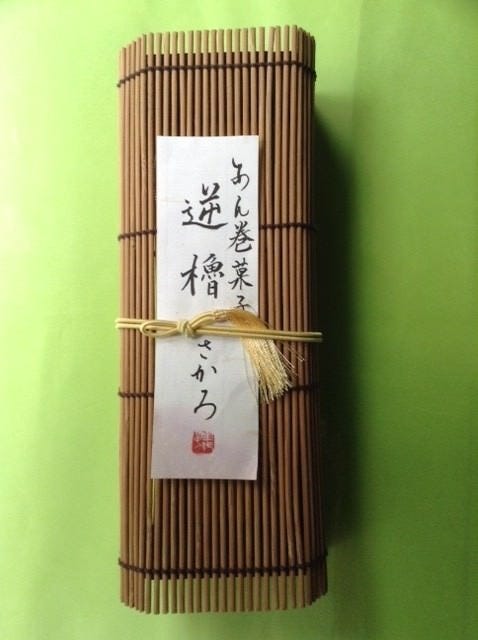 あん巻菓子
逆櫓
さかろ